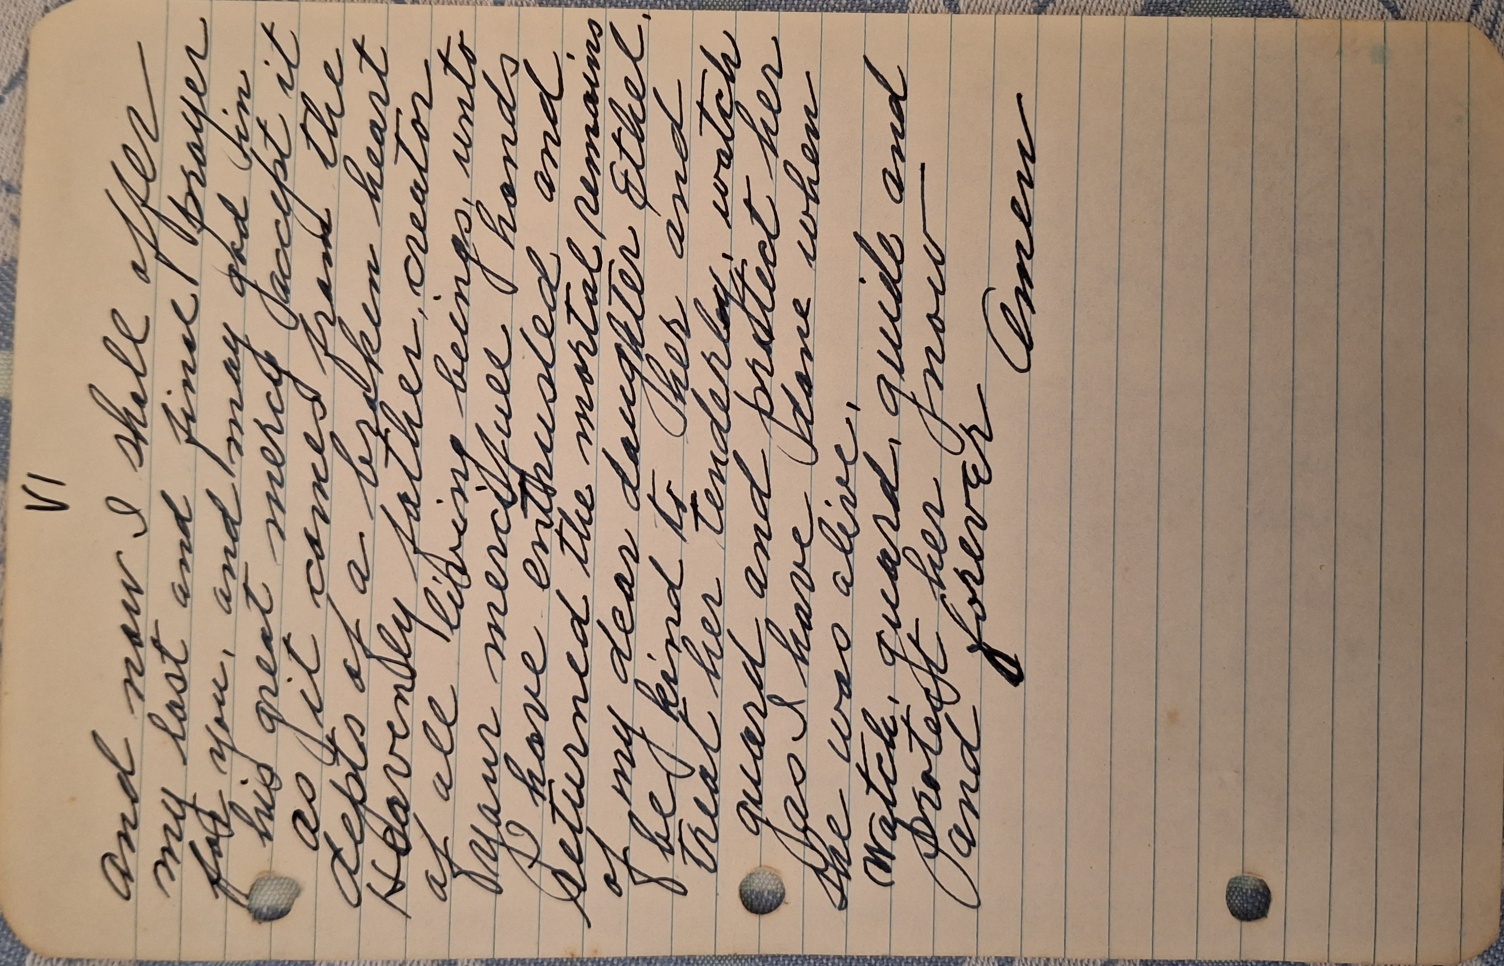 VI
And now I shall offer
my last and final prayer
for you, and may god in
his great mercy accept it
as it comes from the
depts of a broken heart
Heavenly father, creator
of all living beings, unto
your mercifull hands
I have entrusted and
returned the mortal remains
of my dear daughter Ethel.
be kind to her and
treat her tenderly, watch
guard and protect her
as I have done when
she was alive.
Watch, guard, guide and
protect her now —
and forever
Amen